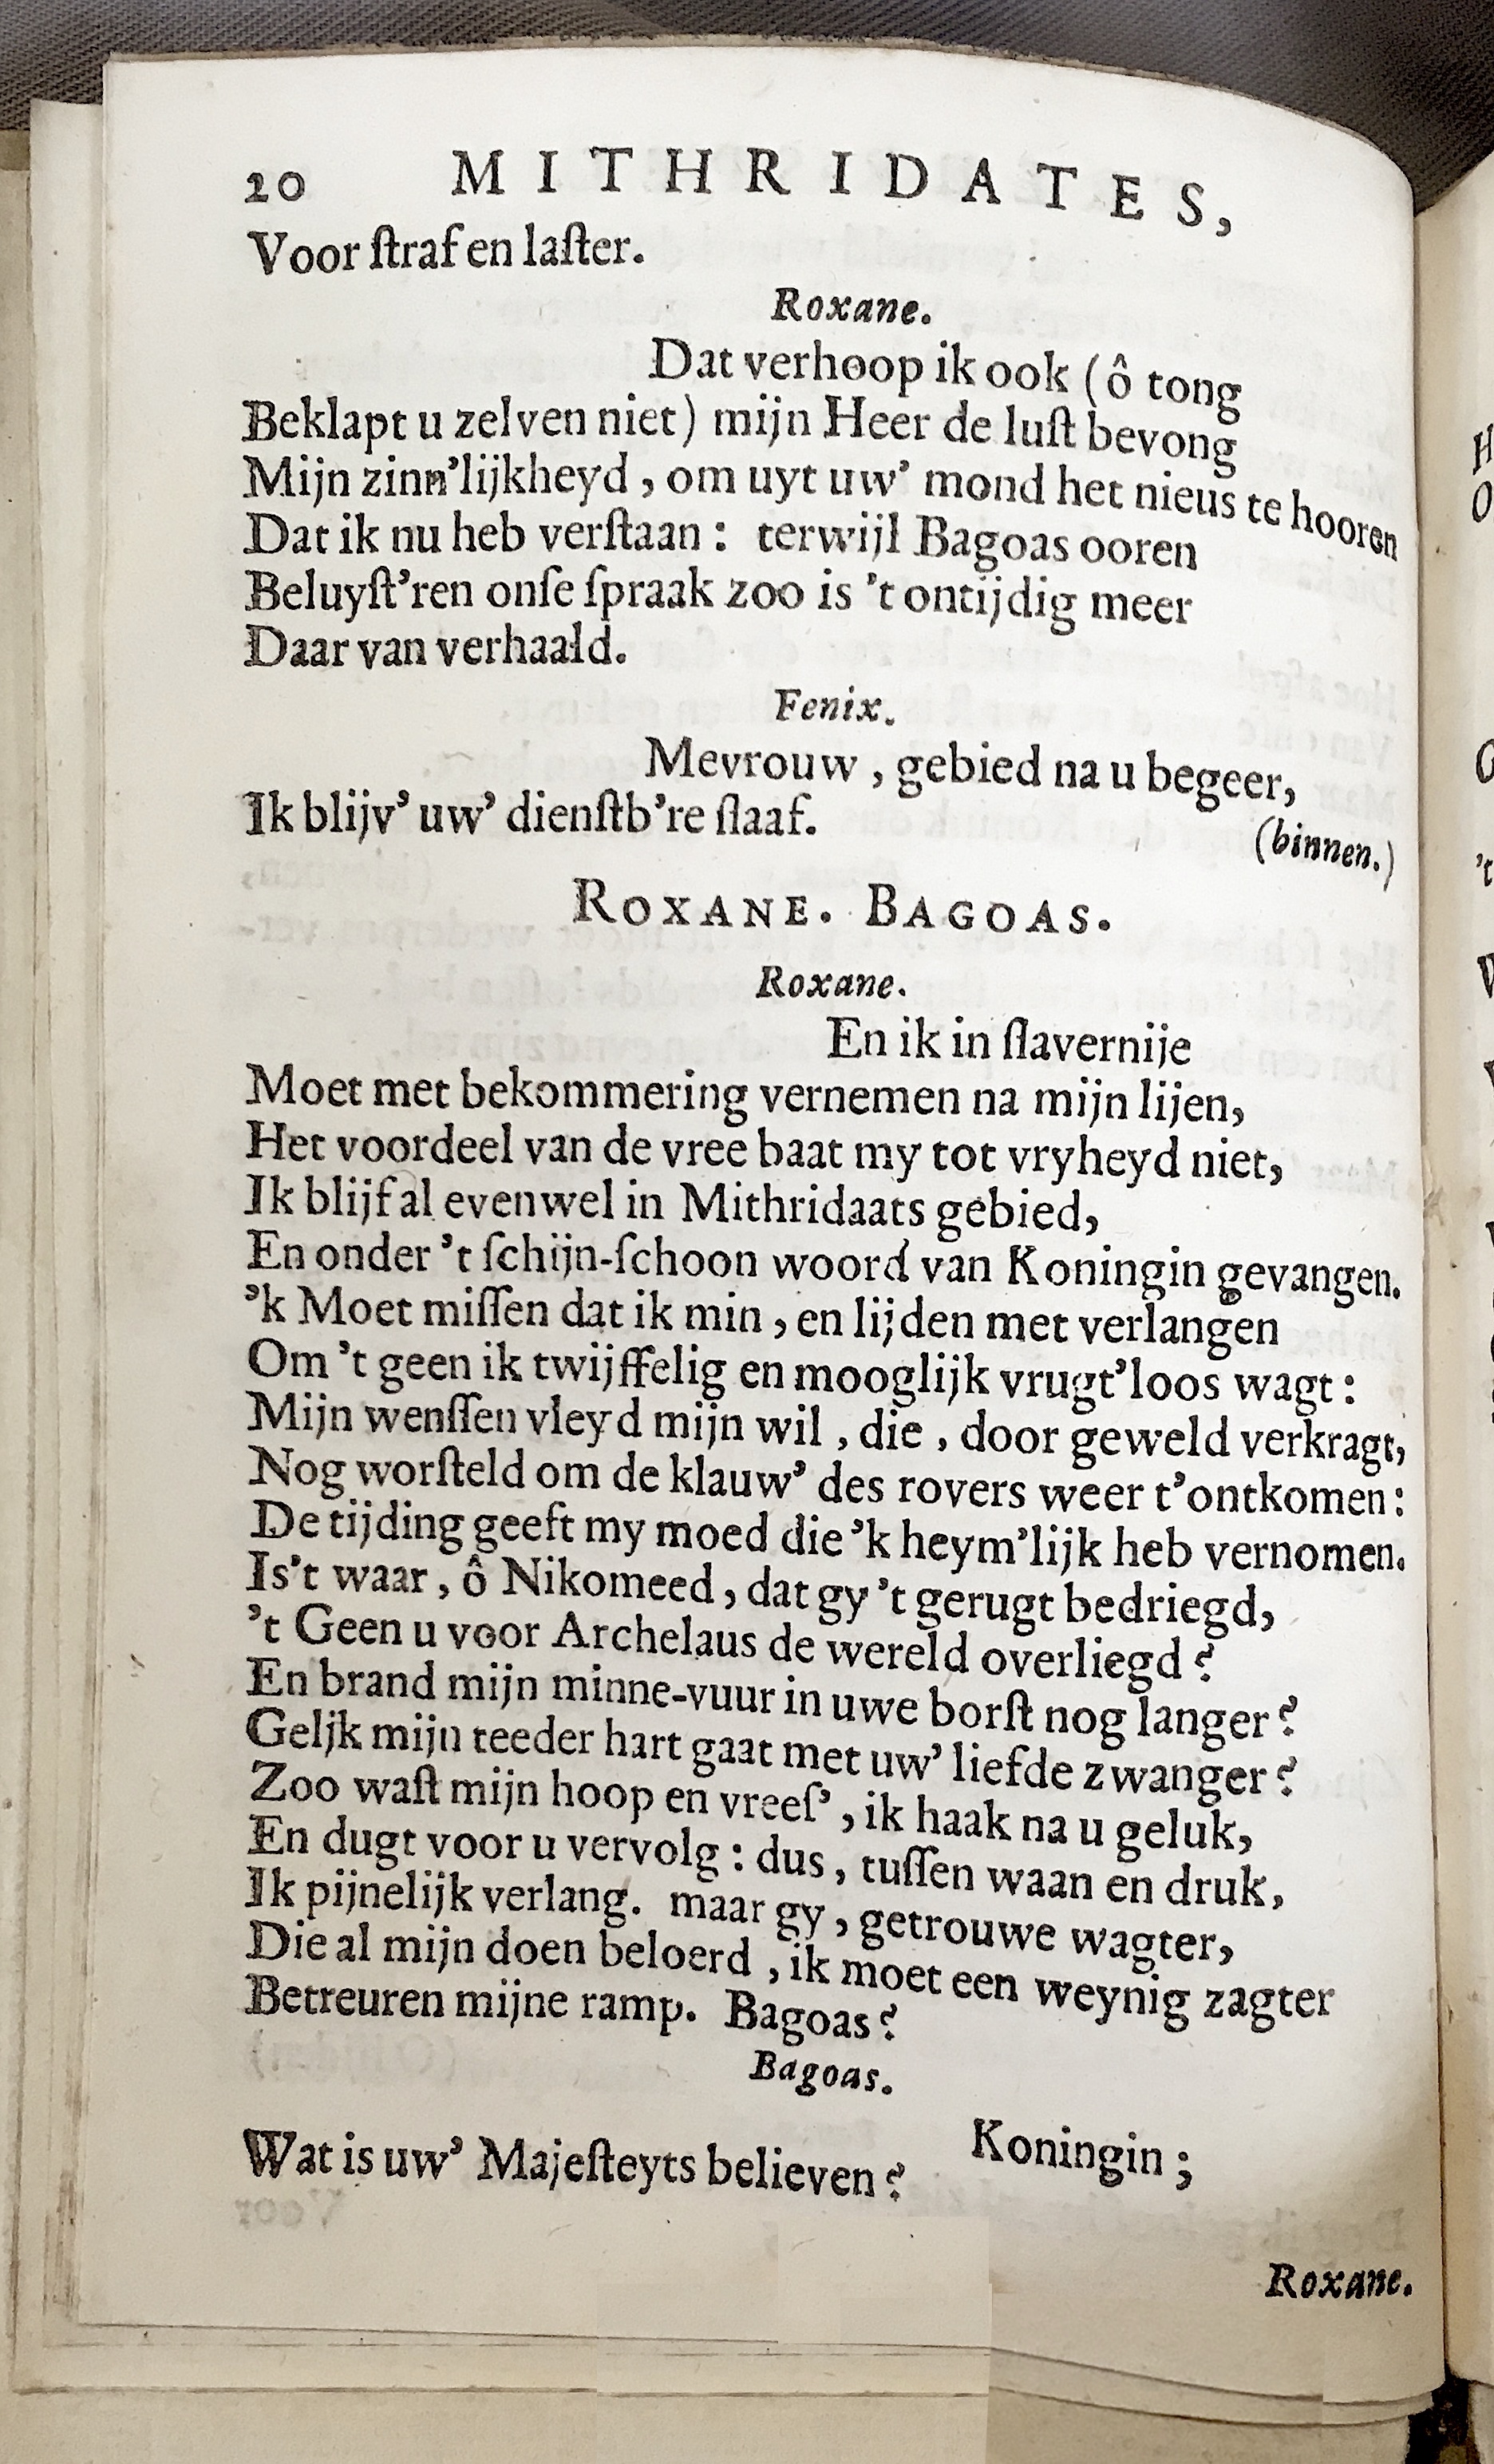 20 MITHRIDATES,
Voor ſtraf en laſter.
Roxane.
Dat verhoop ik ook (ô tong
Beklapt u zelven niet) mijn Heer de luſt bevong
Mijn zinn'lijkheyd, om uyt uw' mond het nieus te hooren
Dat ik nu heb verſtaan: terwijl Bagoas ooren
Beluyſt'ren onſe ſpraak zoo is 't ontijdig meer
Daar van verhaald.
Fenix.
Mevrouw, gebied na u begeer,
Ik blijv' uw' dienſtb're ſlaaf.
(binnen.)
ROXANE. BAGOAS.
Roxane.
En ik in ſlavernije
Moet met bekommering vernemen na mijn lijen,
Het voordeel van de vree baat my tot vryheyd niet,
Ik blijf al evenwel in Mithridaats gebied,
En onder 't ſchijn-ſchoon woord van Koningin gevangen.
'k Moet miſſen dat ik min, en lijden met verlangen
Om 't geen ik twijffelig en mooglijk vrugt'loos wagt:
Mijn wenſſen vleyd mijn wil, die, door geweld verkragt,
Nog worſteld om de klauw' des rovers weer t'ontkomen:
De tijding geeft my moed die 'k heym'lijk heb vernomen.
Is't waar, ô Nikomeed, dat gy 't gerugt bedriegd,
't Geen u voor Archelaus de wereld overliegd?
En brand mijn minne-vuur in uwe borſt nog langer?
Geljk mijn teeder hart gaat met uw' liefde zwanger?
Zoo waſt mijn hoop en vreeſ', ik haak na u geluk,
En dugt voor u vervolg: dus, tuſſen waan en druk,
Ik pijnelijk verlang. maar gy, getrouwe wagter,
Die al mijn doen beloerd, ik moet een weynig zagter
Betreuren mijne ramp. Bagoas?
Bagoas.
Koningin;
Wat is uw' Majeſteyts believen?
Roxane.